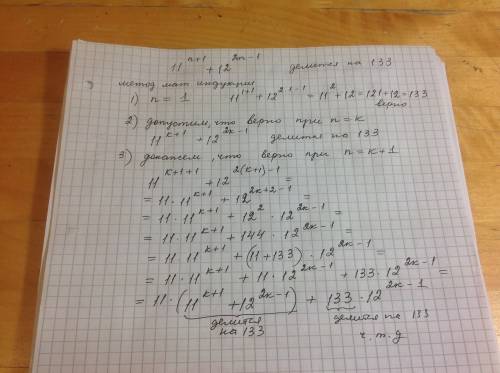 11^{n+1} + 12^{2n-1} делится на 133
метод мат индукции
1) n = 1 11^{1+1} + 12^{2·1-1} = 11^2 + 12 = 121 + 12 = 133
верно
2) допустим, что верно при n = k
11^{k+1} + 12^{2k-1} делится на 133
3) докажем, что верно при n = k+1
11^{k+1+1} + 12^{2(k+1)-1} =
= 11 · 11^{k+1} + 12^{2k+2-1} =
= 11 · 11^{k+1} + 12^2 · 12^{2k-1} =
= 11 · 11^{k+1} + 144 · 12^{2k-1} =
= 11 · 11^{k+1} + (11+133) · 12^{2k-1} =
= 11 · 11^{k+1} + 11 · 12^{2k-1} + 133 · 12^{2k-1} =
= 11 · (11^{k+1} + 12^{2k-1}) + 133 · 12^{2k-1}
делится на 133 делится на 133
ч. т. д